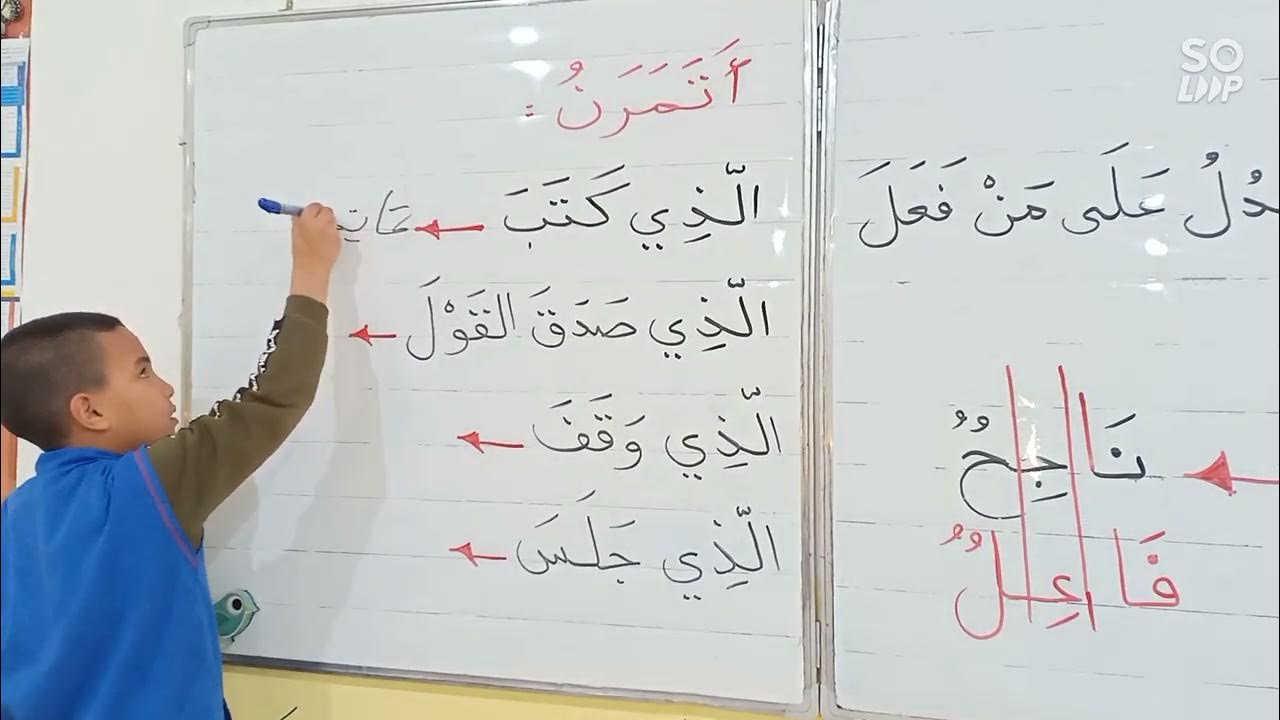 أَتَمَرَنُ :
الَّذِي كَتَبَ ← كَاتِ
الَّذِي صَدَقَ القَوْلَ ←
الَّذِي وَقَفَ ←
الَّذِي جَلَسَ ←
دُلُ عَلَى مَنْ فَعَلَ
← نَاجِحٌ
فَاعِلٌ
SO LOOP